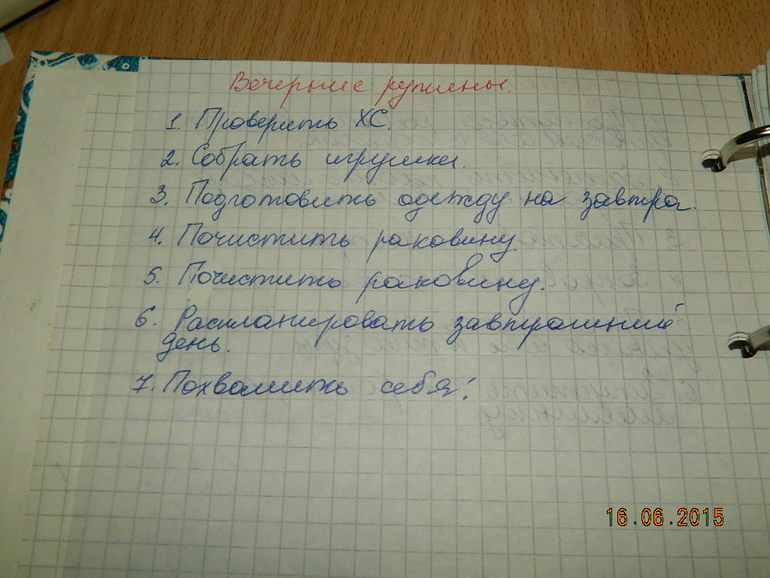 Вечерние рутины.
1. Проверить ХС.
2. Собрать игрушки.
3. Подготовить одежду на завтра.
4. Почистить раковину.
5. Почистить раковину.
6. Распланировать завтрашний
день.
7. Похвалить себя!
16.06.2015